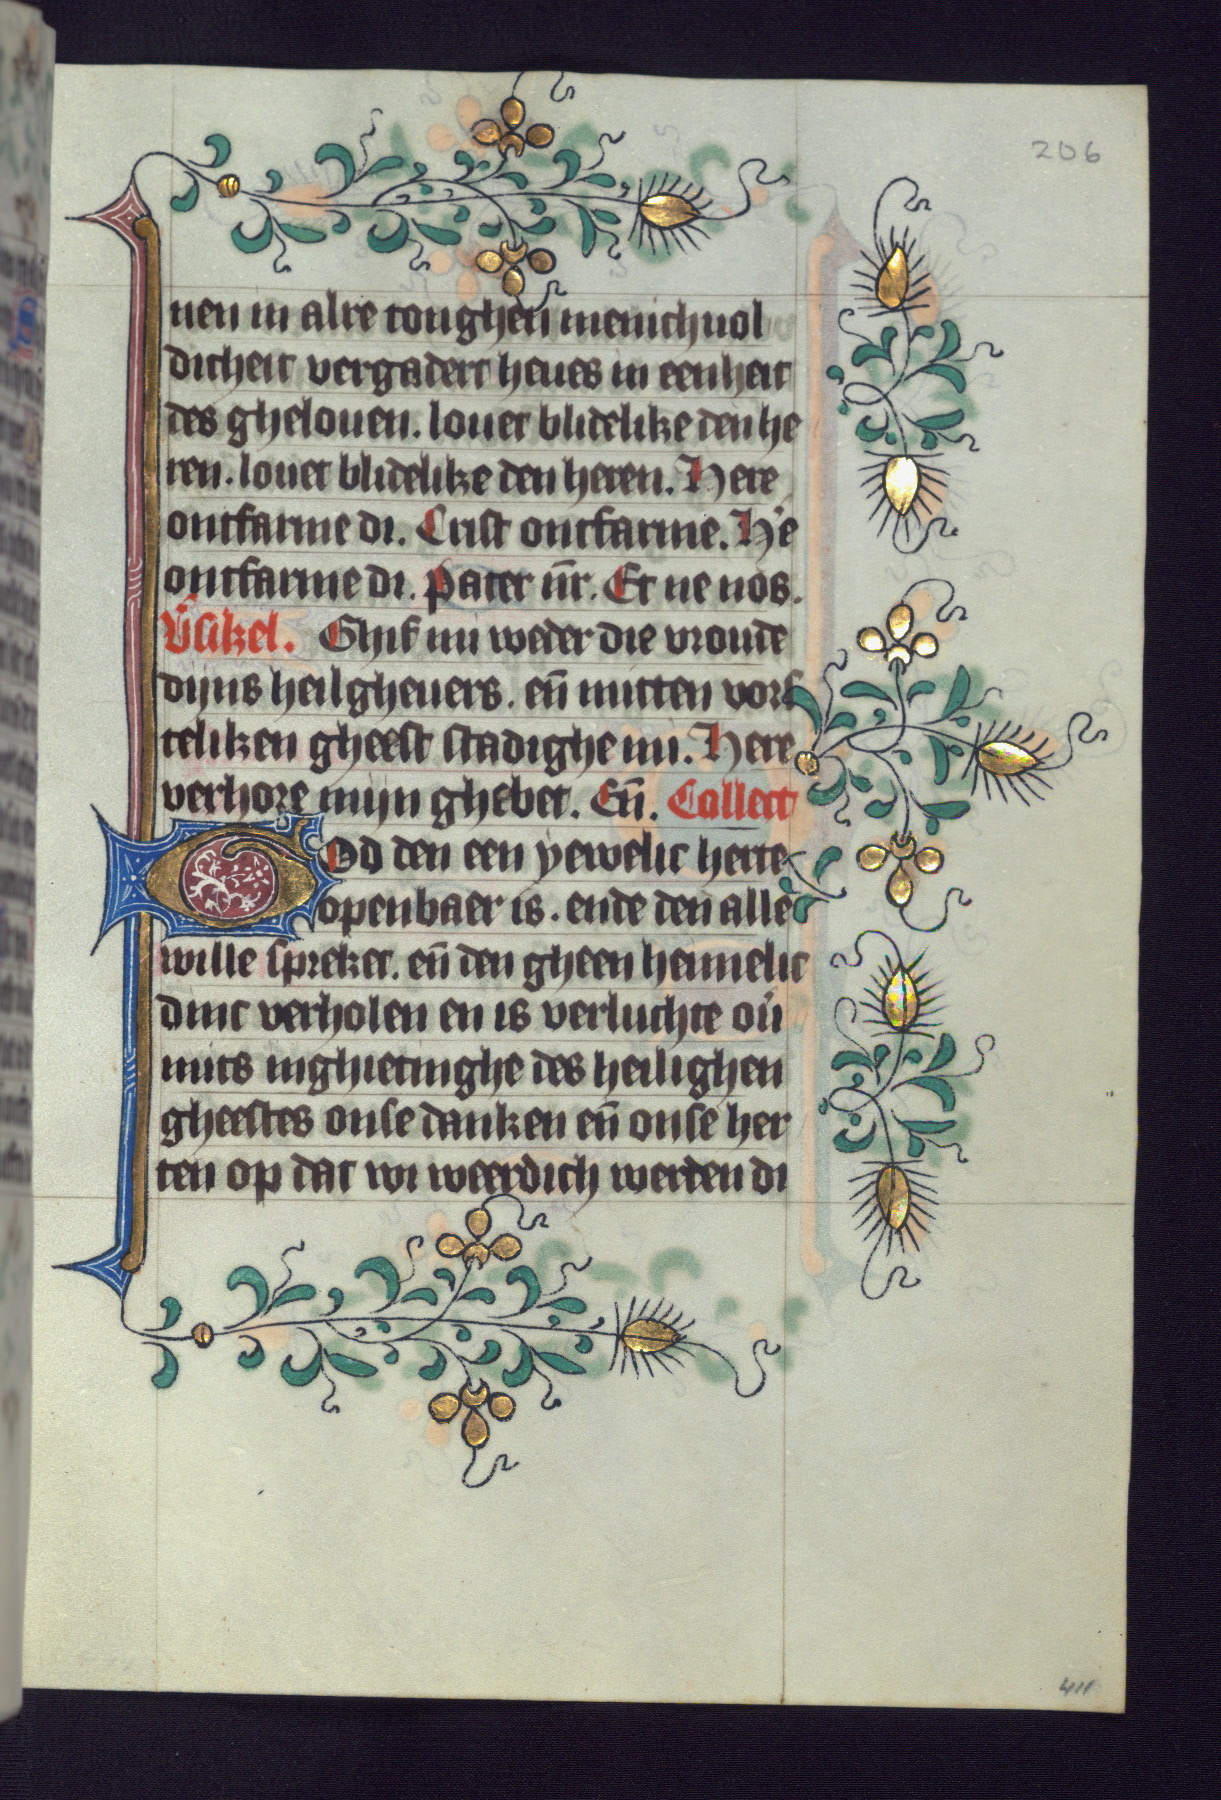 206
uen in alre tonghen menichuol
dicheit vergadert heues in eenheit
des ghelouen. louet blidelike den he
ren. louet blidelike den heren. Here
ontfarme di. Crist ontfarme. H'e
ontfarme di. Pater nr̄. Et ne nos.
V̄sikel. Ghif mi weder die vroude
dijns heilgheuers. en̄ mitten vors
teliken gheest stadighe mi. Here
verhore mijn ghebet. En̄. Collect
God den een yewelic herte
openbaer is. ende den alle
wille spreket. en̄ den gheen heimelic
dinc verholen en is verluchte ou̕
mits inghietinghe des heilighen
gheestes onse danken en̄ onse her
ten op dat wi weerdich werden di
411